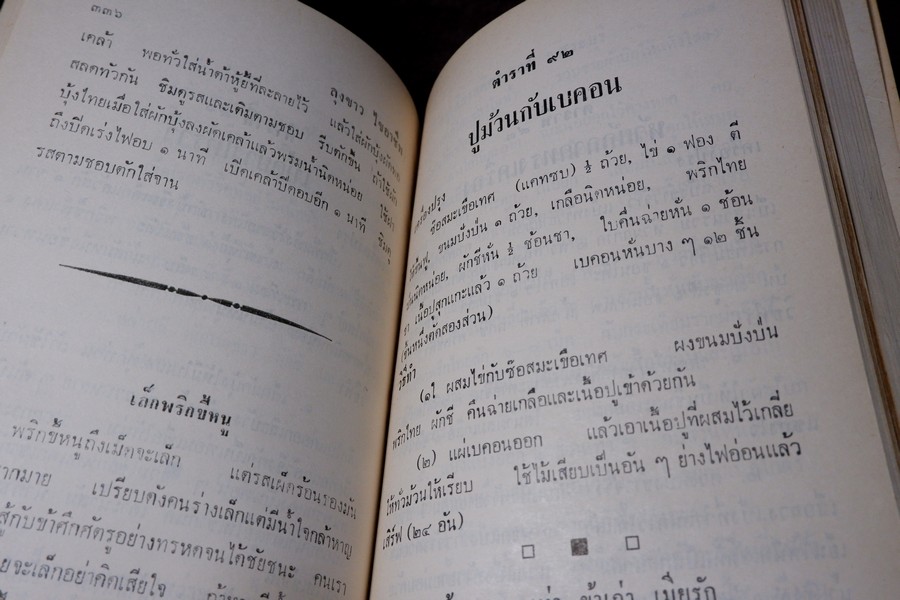 ๓๓๖
ลุงขาว ไขอาชีพ
เคล้า พอทั่วใส่น้ำเต้าหู้ยี้ที่ละลายไว้ แล้วใส่ผักบุ้ง
สลดทั่วกัน ชิมดูรสและเติมตามชอบ รีบตักขึ้น ถ้าใช้ผัก
บุ้งไทยเมื่อใส่ผักบุ้งลงผัดเคล้าแล้วพรมน้ำนิดหน่อย ใช้ฝา
ถึงปิดเร่งไฟอบ ๑ นาที เปิดเคล้าปิดอบอีก ๑ นาที ชิมดู
รสตามชอบตักใส่จาน
เล็กพริกขี้หนู
พริกขี้หนูถึงเม็ดจะเล็ก แต่รสเผ็ดร้อนของมัน
มากมาย เปรียบดังคนร่างเล็กแต่มีน้ำใจกล้าหาญ
สู้กับข้าศึกศัตรูอย่างทรหดจนได้ชัยชนะ คนเรา
จะเล็กอย่าคิดเสียใจ
ตำราที่ ๙๒
ปูม้วนกับเบคอน
เครื่องปรุง
ซ้อสมะเขือเทศ (แคทซบ) ½ ถ้วย, ไข่ ๑ ฟอง ตี
ให้ขึ้นฟู, ขนมปังป่น ๑ ถ้วย, เกลือนิดหน่อย, พริกไทย
ป่นนิดหน่อย, ผักชีหั่น ½ ช้อนชา, ใบคื่นฉ่ายหั่น ๑ ช้อน
ชา เนื้อปูสุกแกะแล้ว ๑ ถ้วย เบคอนหั่นบาง ๆ ๑๒ ชิ้น
(ชิ้นหนึ่งตัดสองส่วน)
วิธีทำ
(๑) ผสมไข่กับซ๊อสมะเขือเทศ ผงขนมปังป่น
พริกไทย ผักชี คื่นฉ่ายเกลือและเนื้อปูเข้าด้วยกัน
(๒) แผ่เบคอนออก แล้วเอาเนื้อปูที่ผสมไว้เกลี่ย
ให้ทั่วม้วนให้เรียบ ใช้ไม้เสียบเป็นอัน ๆ ย่างไฟอ่อนแล้ว
เสิร์ฟ (๒๔ อัน)
ข้าเก่า เมียรัก